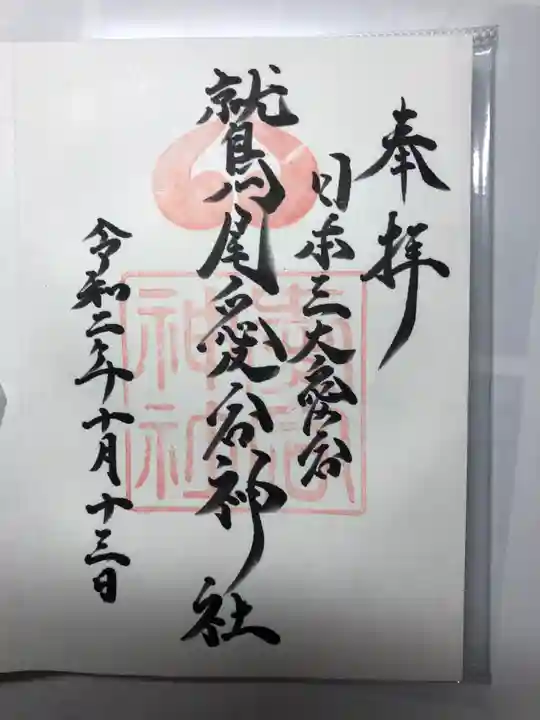 奉拝
日本三大愛宕
鷲尾愛宕神社
令和二年十月十三日
愛宕神社